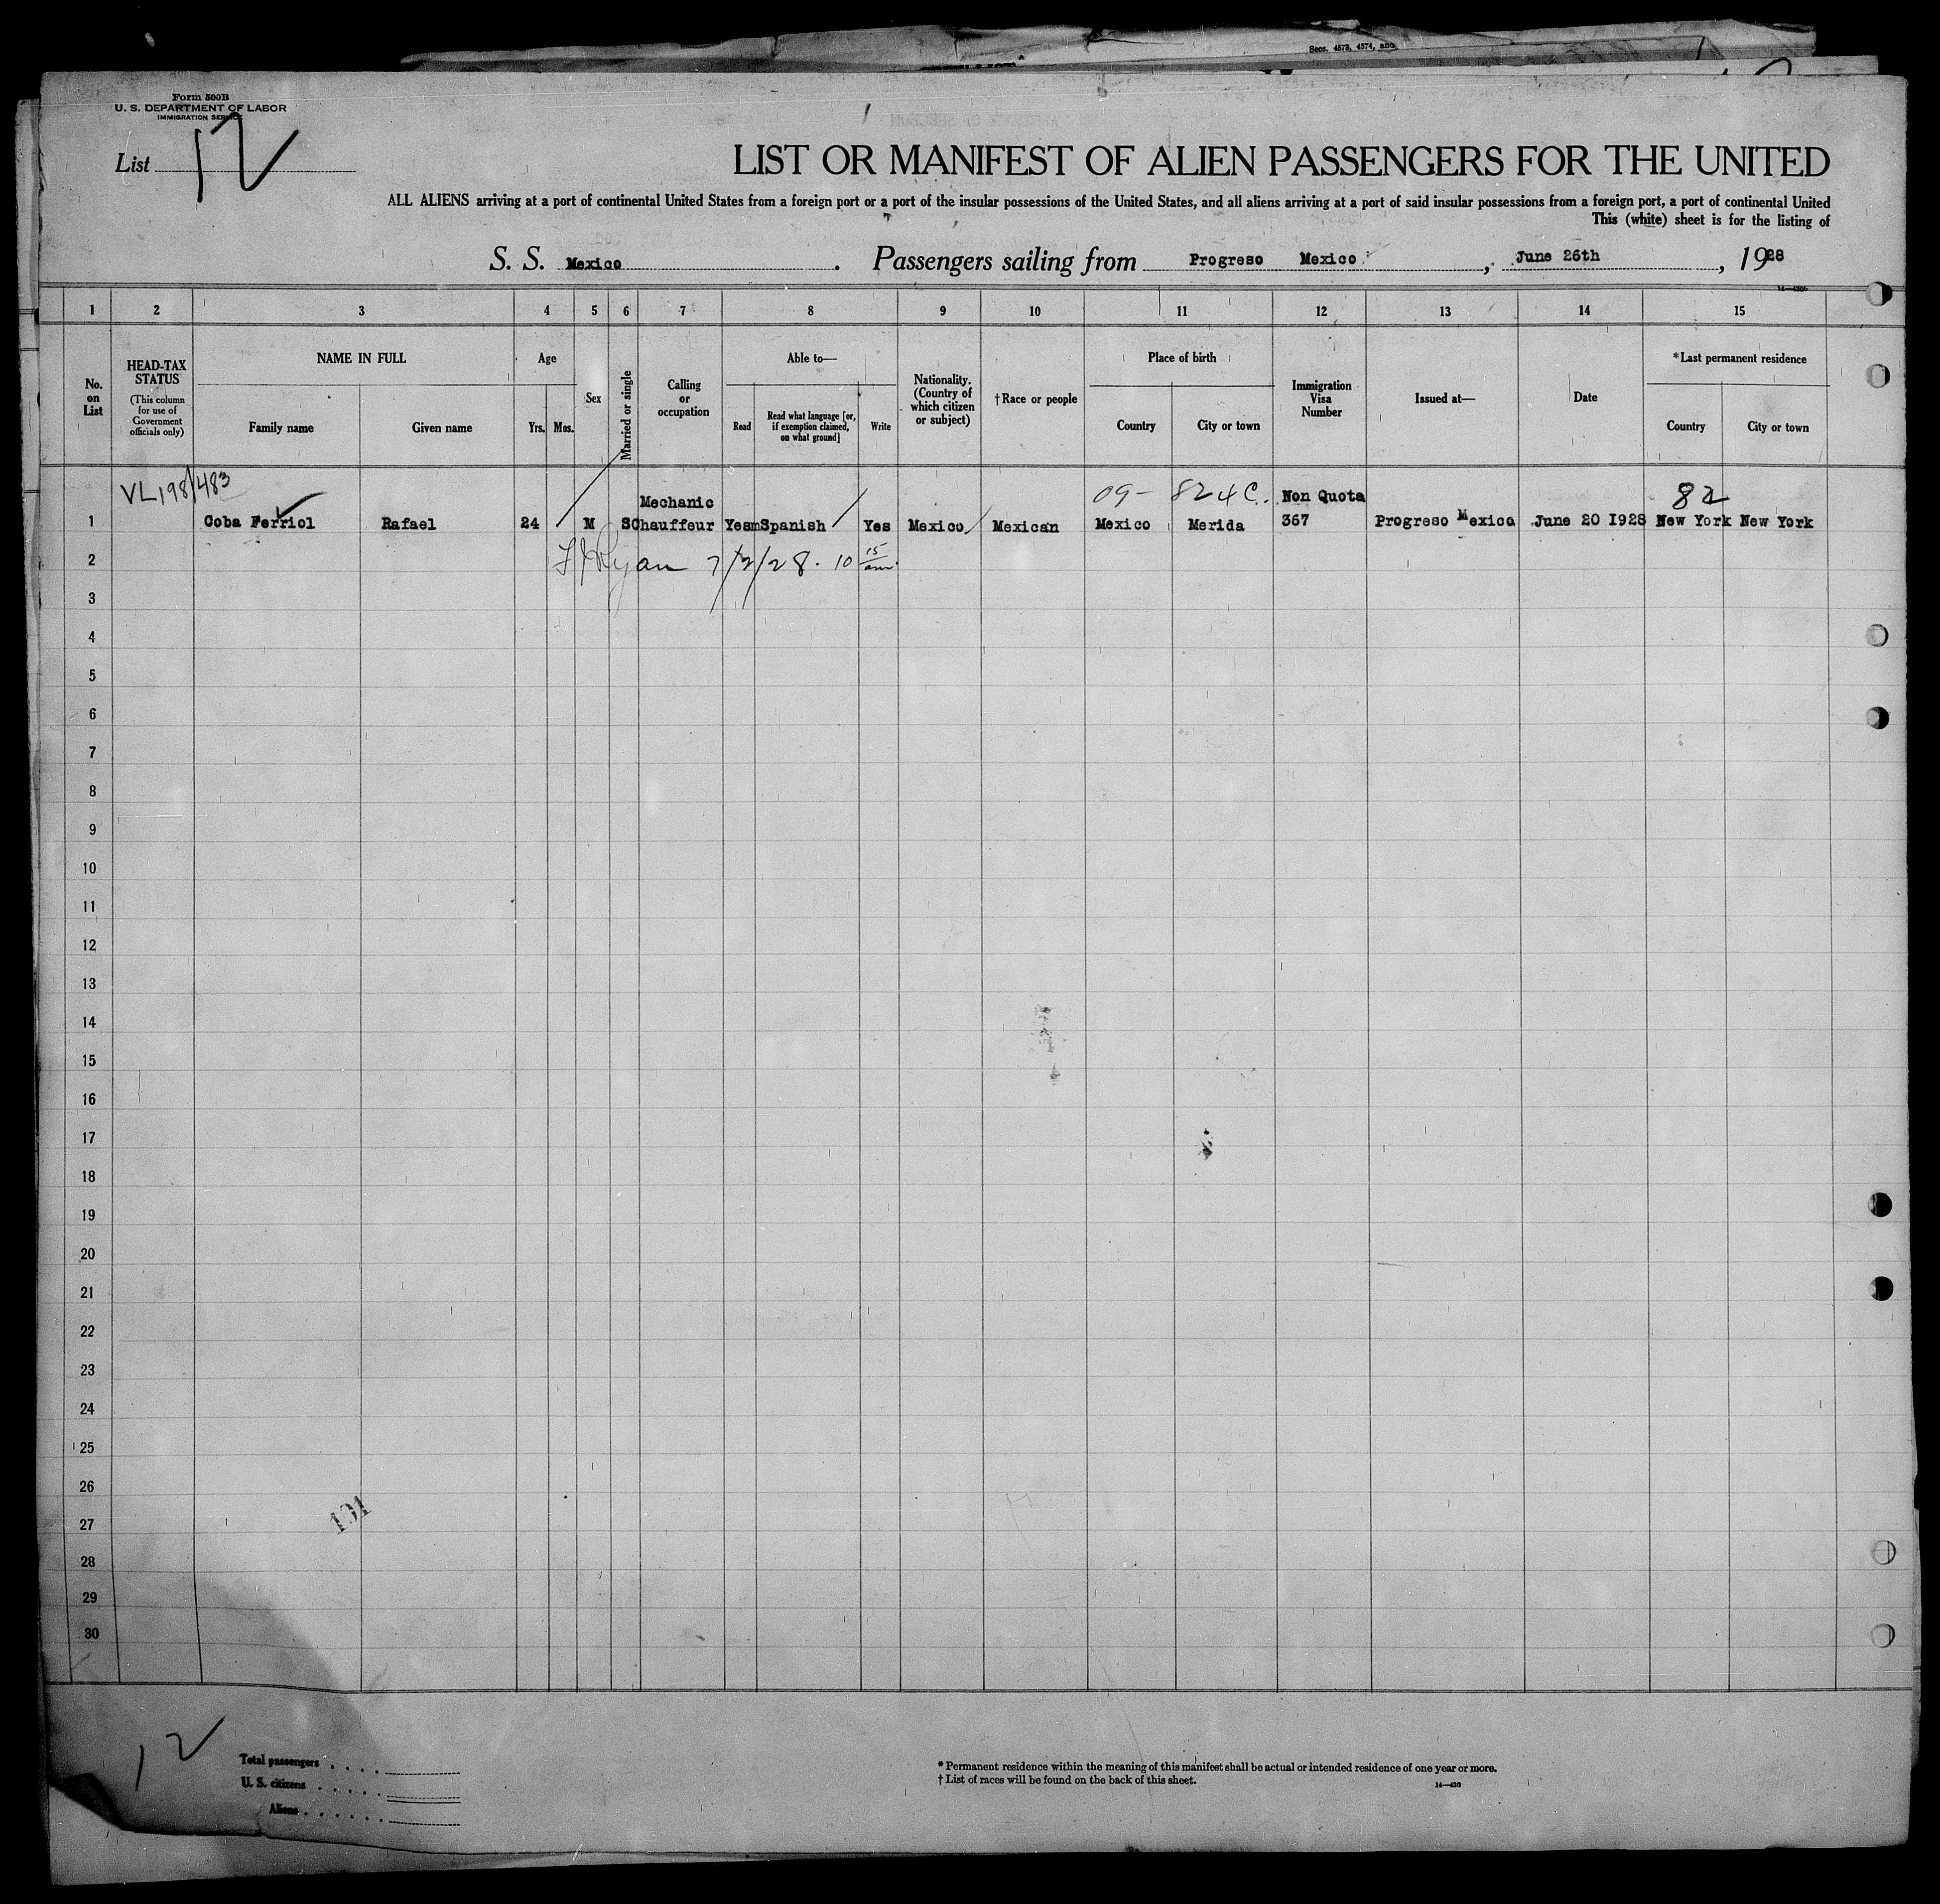 Secs. 4573, 4574, and
Form 500B
U. S. DEPARTMENT OF LABOR
IMMIGRATION SERVICE
List 12
LIST OR MANIFEST OF ALIEN PASSENGERS FOR THE UNITED
ALL ALIENS arriving at a port of continental United States from a foreign port or a port of the insular possessions of the United States, and all aliens arriving at a port of said insular possessions from a foreign port, a port of continental United
This (white) sheet is for the listing of
S. S. Mexico. Passengers sailing from Progreso Mexico, June 26th, 1928
1 2 3 4 5 6 7 8 9 10 11 12 13 14 15
No. on List
HEAD-TAX STATUS
(This column for use of Government officials only)
NAME IN FULL
Family name Given name
Age
Yrs. Mos.
Sex
Married or single
Calling or occupation
Able to—
Read
Read what language [or, if exemption claimed, on what ground]
Write
Nationality. (Country of which citizen or subject)
†Race or people
Place of birth
Country City or town
Immigration Visa Number
Issued at—
Date
*Last permanent residence
Country City or town
VL198/483 Mechanic 09- 824C. Non Quota 82
1 Coba Ferriol Rafael 24 M S Chauffeur Yes Spanish Yes Mexico Mexican Mexico Merida 367 Progreso Mexico June 20 1928 New York New York
2 F J Ryan 7/2/28. 10 15 am.
3
4
5
6
7
8
9
10
11
12
13
14
15
16
17
18
19
20
21
22
23
24
25
26
27
28
29
30
101
12
Total passengers
U. S. citizens
Aliens
* Permanent residence within the meaning of this manifest shall be actual or intended residence of one year or more.
† List of races will be found on the back of this sheet.
14—430